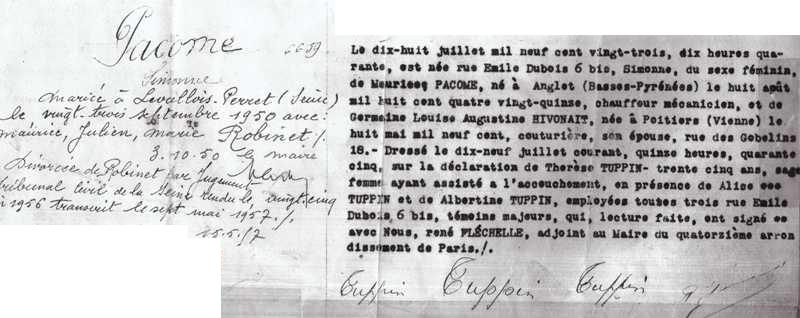 Pacome
6639
Simonne
mariée à Levallois-Perret (Seine)
le vingt trois septembre 1950 avec:
maurice, Julien, marie Robinet /.
3.10.50 le maire
Divorcée de Robinet par Jugement
tribunal Civil de la Seine rendu le vingt cinq
1956 transcrit le sept mai 1957./.
15.5./7
Le dix-huit juillet mil neuf cent vingt-trois, dix heures qua-
rante, est née rue Emile Dubois 6 bis, Simonne, du sexe féminin,
de Maurice PACOME, né à Anglet (Basses-Pyrénées) le huit août
mil huit cent quatre vingt-quinze, chauffeur mécanicien, et de
Germaine Louise Augustine HIVONAIT, née à Poitiers (Vienne) le
huit mai mil neuf cent, couturière, son épouse, rue des Gobelins
18.- Dressé le dix-neuf juillet courant, quinze heures, quarante
cinq, sur la déclaration de Thérèse TUPPIN- trente cinq ans, sage
femme ayant assisté a l'accouchement, en présence de Alice
TUPPIN et de Albertine TUPPIN, employées toutes trois rue Emile
Dubois 6 bis, témoins majeurs, qui, lecture faite, ont signé
avec Nous, rené FLÉCHELLE, adjoint au Maire du quatorzième arron
dissement de Paris./.
Tuppin Tuppin Tuppin